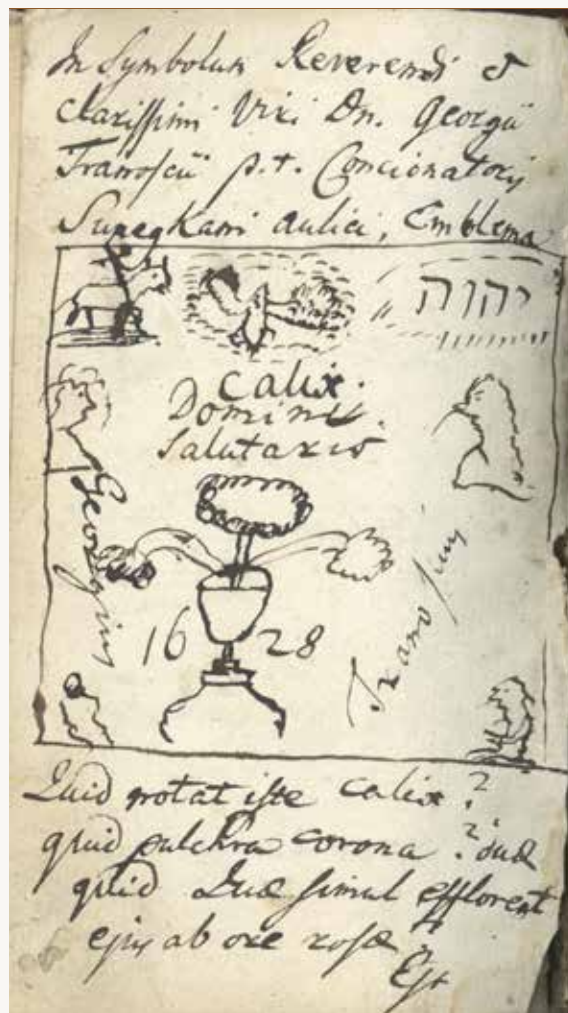 In Symbolum Reverendi &
clarissimi Viri Dn. Georgii
Tranoscii p.t. Concionatoris
aulici, Emblema
יהוה
Calix.
Domini.
Salutaris
Georgius
Tranoscius
16 28
Quid notat iste calix?
quid pulchra corona? duæ
quid Quæ simul efflorent
ejus ab ore rosæ?
Est